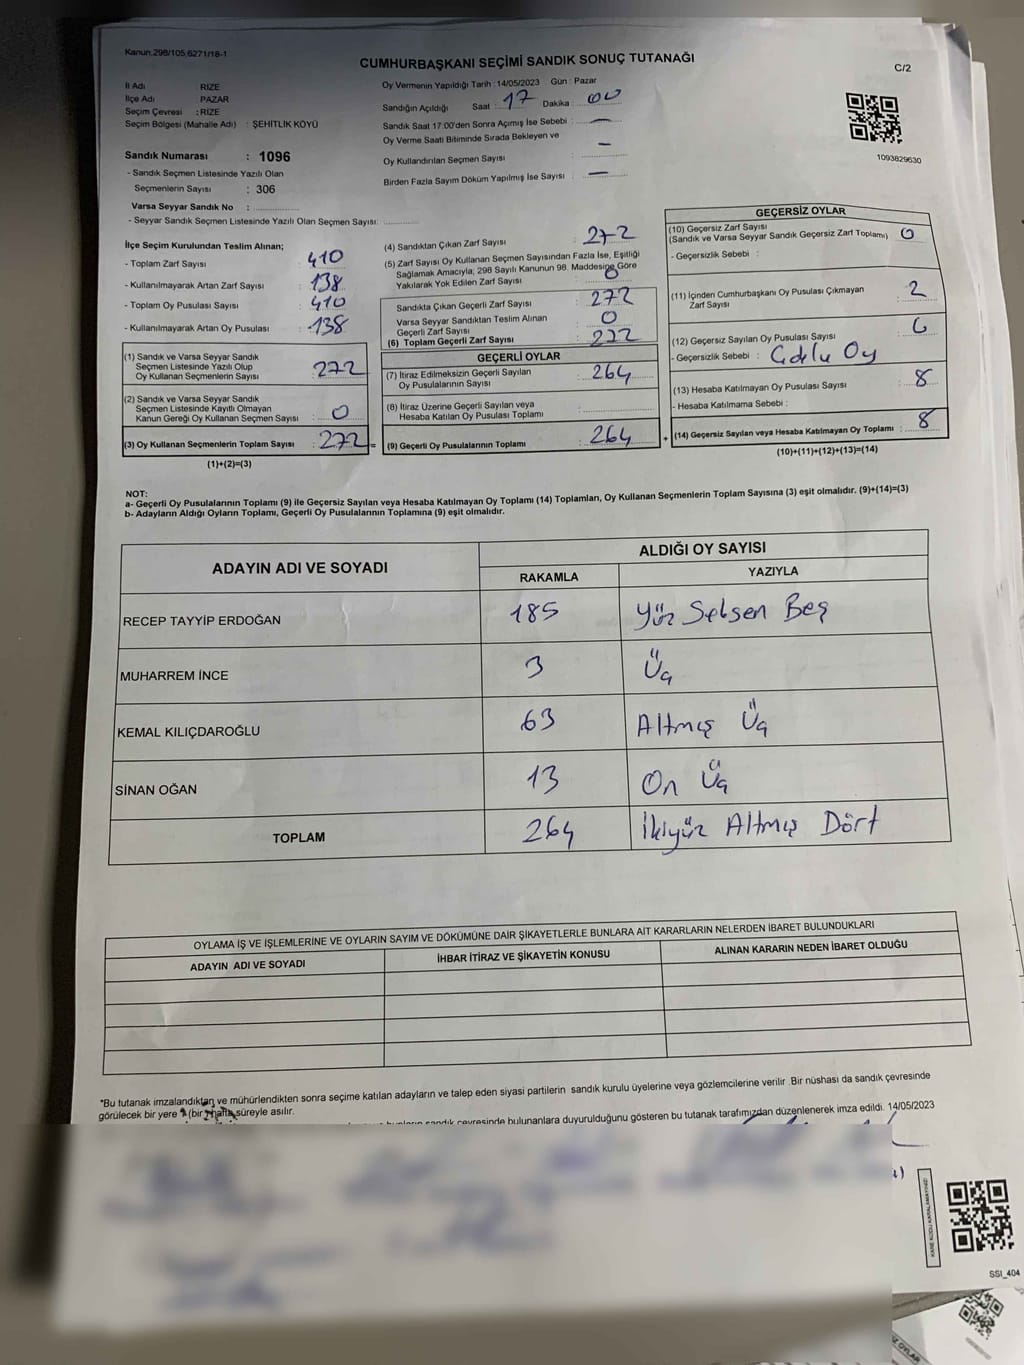 Kanun.298/105,6271/18-1
CUMHURBAŞKANI SEÇİMİ SANDIK SONUÇ TUTANAĞI
C/2
İl Adı RİZE
İlçe Adı PAZAR
Seçim Çevresi : RİZE
Seçim Bölgesi (Mahalle Adı) : ŞEHİTLİK KÖYÜ
Sandık Numarası : 1096
- Sandık Seçmen Listesinde Yazılı Olan
Seçmenlerin Sayısı : 306
Varsa Seyyar Sandık No :
- Seyyar Sandık Seçmen Listesinde Yazılı Olan Seçmen Sayısı:
Oy Vermenin Yapıldığı Tarih : 14/05/2023 Gün : Pazar
Sandığın Açıldığı Saat : 17 Dakika 00
Sandık Saat 17:00'den Sonra Açımış İse Sebebi : —
Oy Verme Saati Bitiminde Sırada Bekleyen ve
Oy Kullandırılan Seçmen Sayısı : —
Birden Fazla Sayım Döküm Yapılmış İse Sayısı : —
1093829630
İlçe Seçim Kurulundan Teslim Alınan;
- Toplam Zarf Sayısı : 410
- Kullanılmayarak Artan Zarf Sayısı : 138
- Toplam Oy Pusulası Sayısı : 410
- Kullanılmayarak Artan Oy Pusulası : 138
(1) Sandık ve Varsa Seyyar Sandık
Seçmen Listesinde Yazılı Olup
Oy Kullanan Seçmenlerin Sayısı : 272
(2) Sandık ve Varsa Seyyar Sandık
Seçmen Listesinde Kayıtlı Olmayan
Kanun Gereği Oy Kullanan Seçmen Sayısı : 0
(3) Oy Kullanan Seçmenlerin Toplam Sayısı : 272 =
(1)+(2)=(3)
(4) Sandıktan Çıkan Zarf Sayısı : 272
(5) Zarf Sayısı Oy Kullanan Seçmen Sayısından Fazla İse, Eşitliği
Sağlamak Amacıyla; 298 Sayılı Kanunun 98. Maddesine Göre
Yakılarak Yok Edilen Zarf Sayısı : 0
Sandıkta Çıkan Geçerli Zarf Sayısı : 272
Varsa Seyyar Sandıktan Teslim Alınan
Geçerli Zarf Sayısı : 0
(6) Toplam Geçerli Zarf Sayısı : 272
GEÇERLİ OYLAR
(7) İtiraz Edilmeksizin Geçerli Sayılan
Oy Pusulalarının Sayısı : 264
(8) İtiraz Üzerine Geçerli Sayılan veya
Hesaba Katılan Oy Pusulası Toplamı :
(9) Geçerli Oy Pusulalarının Toplamı : 264 +
GEÇERSİZ OYLAR
(10) Geçersiz Zarf Sayısı
(Sandık ve Varsa Seyyar Sandık Geçersiz Zarf Toplamı) : 0
- Geçersizlik Sebebi :
(11) İçinden Cumhurbaşkanı Oy Pusulası Çıkmayan
Zarf Sayısı : 2
(12) Geçersiz Sayılan Oy Pusulası Sayısı : 6
- Geçersizlik Sebebi : Çoklu Oy
(13) Hesaba Katılmayan Oy Pusulası Sayısı : 8
- Hesaba Katılmama Sebebi :
(14) Geçersiz Sayılan veya Hesaba Katılmayan Oy Toplamı : 8
(10)+(11)+(12)+(13)=(14)
NOT:
a- Geçerli Oy Pusulalarının Toplamı (9) ile Geçersiz Sayılan veya Hesaba Katılmayan Oy Toplamı (14) Toplamları, Oy Kullanan Seçmenlerin Toplam Sayısına (3) eşit olmalıdır. (9)+(14)=(3)
b- Adayların Aldığı Oyların Toplamı, Geçerli Oy Pusulalarının Toplamına (9) eşit olmalıdır.
ADAYIN ADI VE SOYADI
ALDIĞI OY SAYISI
RAKAMLA YAZIYLA
RECEP TAYYİP ERDOĞAN 185 Yüz Seksen Beş
MUHARREM İNCE 3 Üç
KEMAL KILIÇDAROĞLU 63 Altmış Üç
SİNAN OĞAN 13 On Üç
TOPLAM 264 İkiyüz Altmış Dört
OYLAMA İŞ VE İŞLEMLERİNE VE OYLARIN SAYIM VE DÖKÜMÜNE DAİR ŞİKAYETLERLE BUNLARA AİT KARARLARIN NELERDEN İBARET BULUNDUKLARI
ADAYIN ADI VE SOYADI İHBAR İTİRAZ VE ŞİKAYETİN KONUSU ALINAN KARARIN NEDEN İBARET OLDUĞU
*Bu tutanak imzalandıktan ve mühürlendikten sonra seçime katılan adayların ve talep eden siyasi partilerin sandık kurulu üyelerine veya gözlemcilerine verilir .Bir nüshası da sandık çevresinde
görülecek bir yere 1 (bir) hafta süreyle asılır.
sandık çevresinde bulunanlara duyurulduğunu gösteren bu tutanak tarafımızdan düzenlenerek imza edildi. 14/05/2023
KARE KODU KARALAMAYINIZ!
SSİ_404
OYLAR